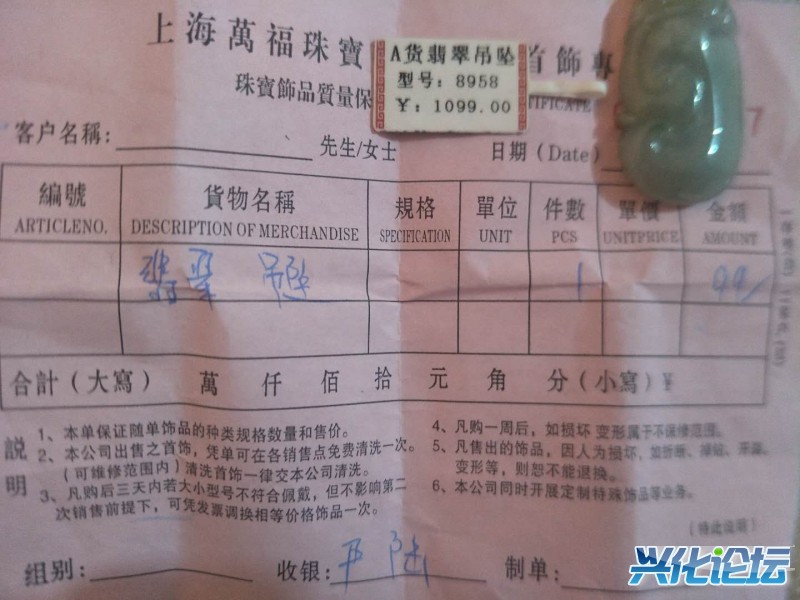 上海萬福珠寶 首飾專
珠寶飾品質量保 TIFICATE
A货翡翠吊坠
型号：8958
￥：1099.00
7
客户名稱： 先生/女士 日期（Date）
編號 貨物名稱 規格 單位 件數 單價 金額
ARTICLENO. DESCRIPTION OF MERCHANDISE SPECIFICATION UNIT PCS UNITPRICE AMOUNT
翡翠 吊坠 1 99/
合計（大寫） 萬 仟 佰 拾 元 角 分（小寫）￥
説明
1、本单保证随单饰品的种类规格数量和售价。
2、本公司出售之首饰，凭单可在各销售点免费清洗一次。
（可维修范围内）清洗首饰一律交本公司清洗。
3、凡购后三天内若大小型号不符合佩戴，但不影响第二
次销售前提下，可凭发票调换相等价格饰品一次。
4、凡购一周后，如损坏 变形属于不保修范围。
5、凡售出的饰品，因人为损坏，如折断、掉钻、
变形等，则恕不能退换。
6、本公司同时开展定制特殊饰品等业务。
（特此说明）
组别： 收银： 制单：
兴化论坛